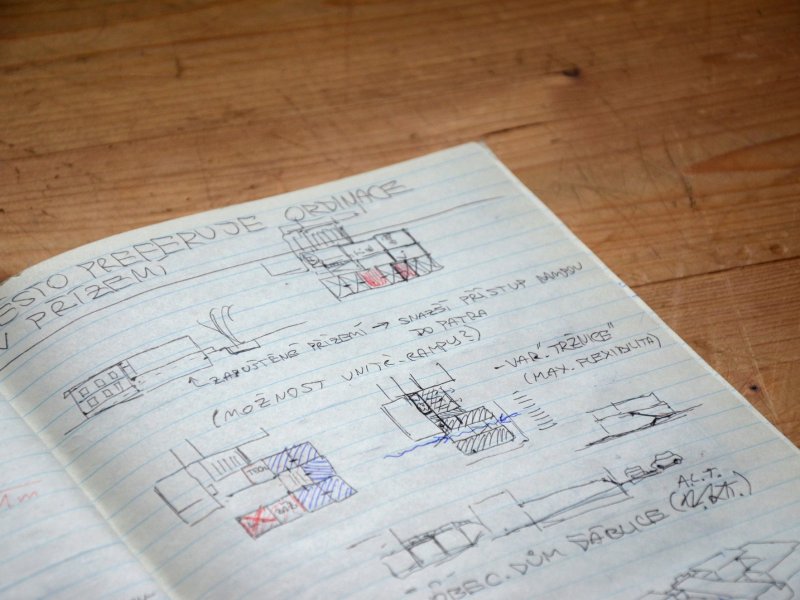 ĚSTO PREFERUJE ORDINACE
V PŘÍZEMÍ
ZAPUŠTĚNÉ PŘÍZEMÍ → SNAZŠÍ PŘÍSTUP
DO PATRA
(MOŽNOST VNITŘ. RAMPY?)
- VAR. "TRŽNICE"
(MAX. FLEXIBILITA)
TECH
A.C.T.
OBEC. DŮM ĎÁBLICE